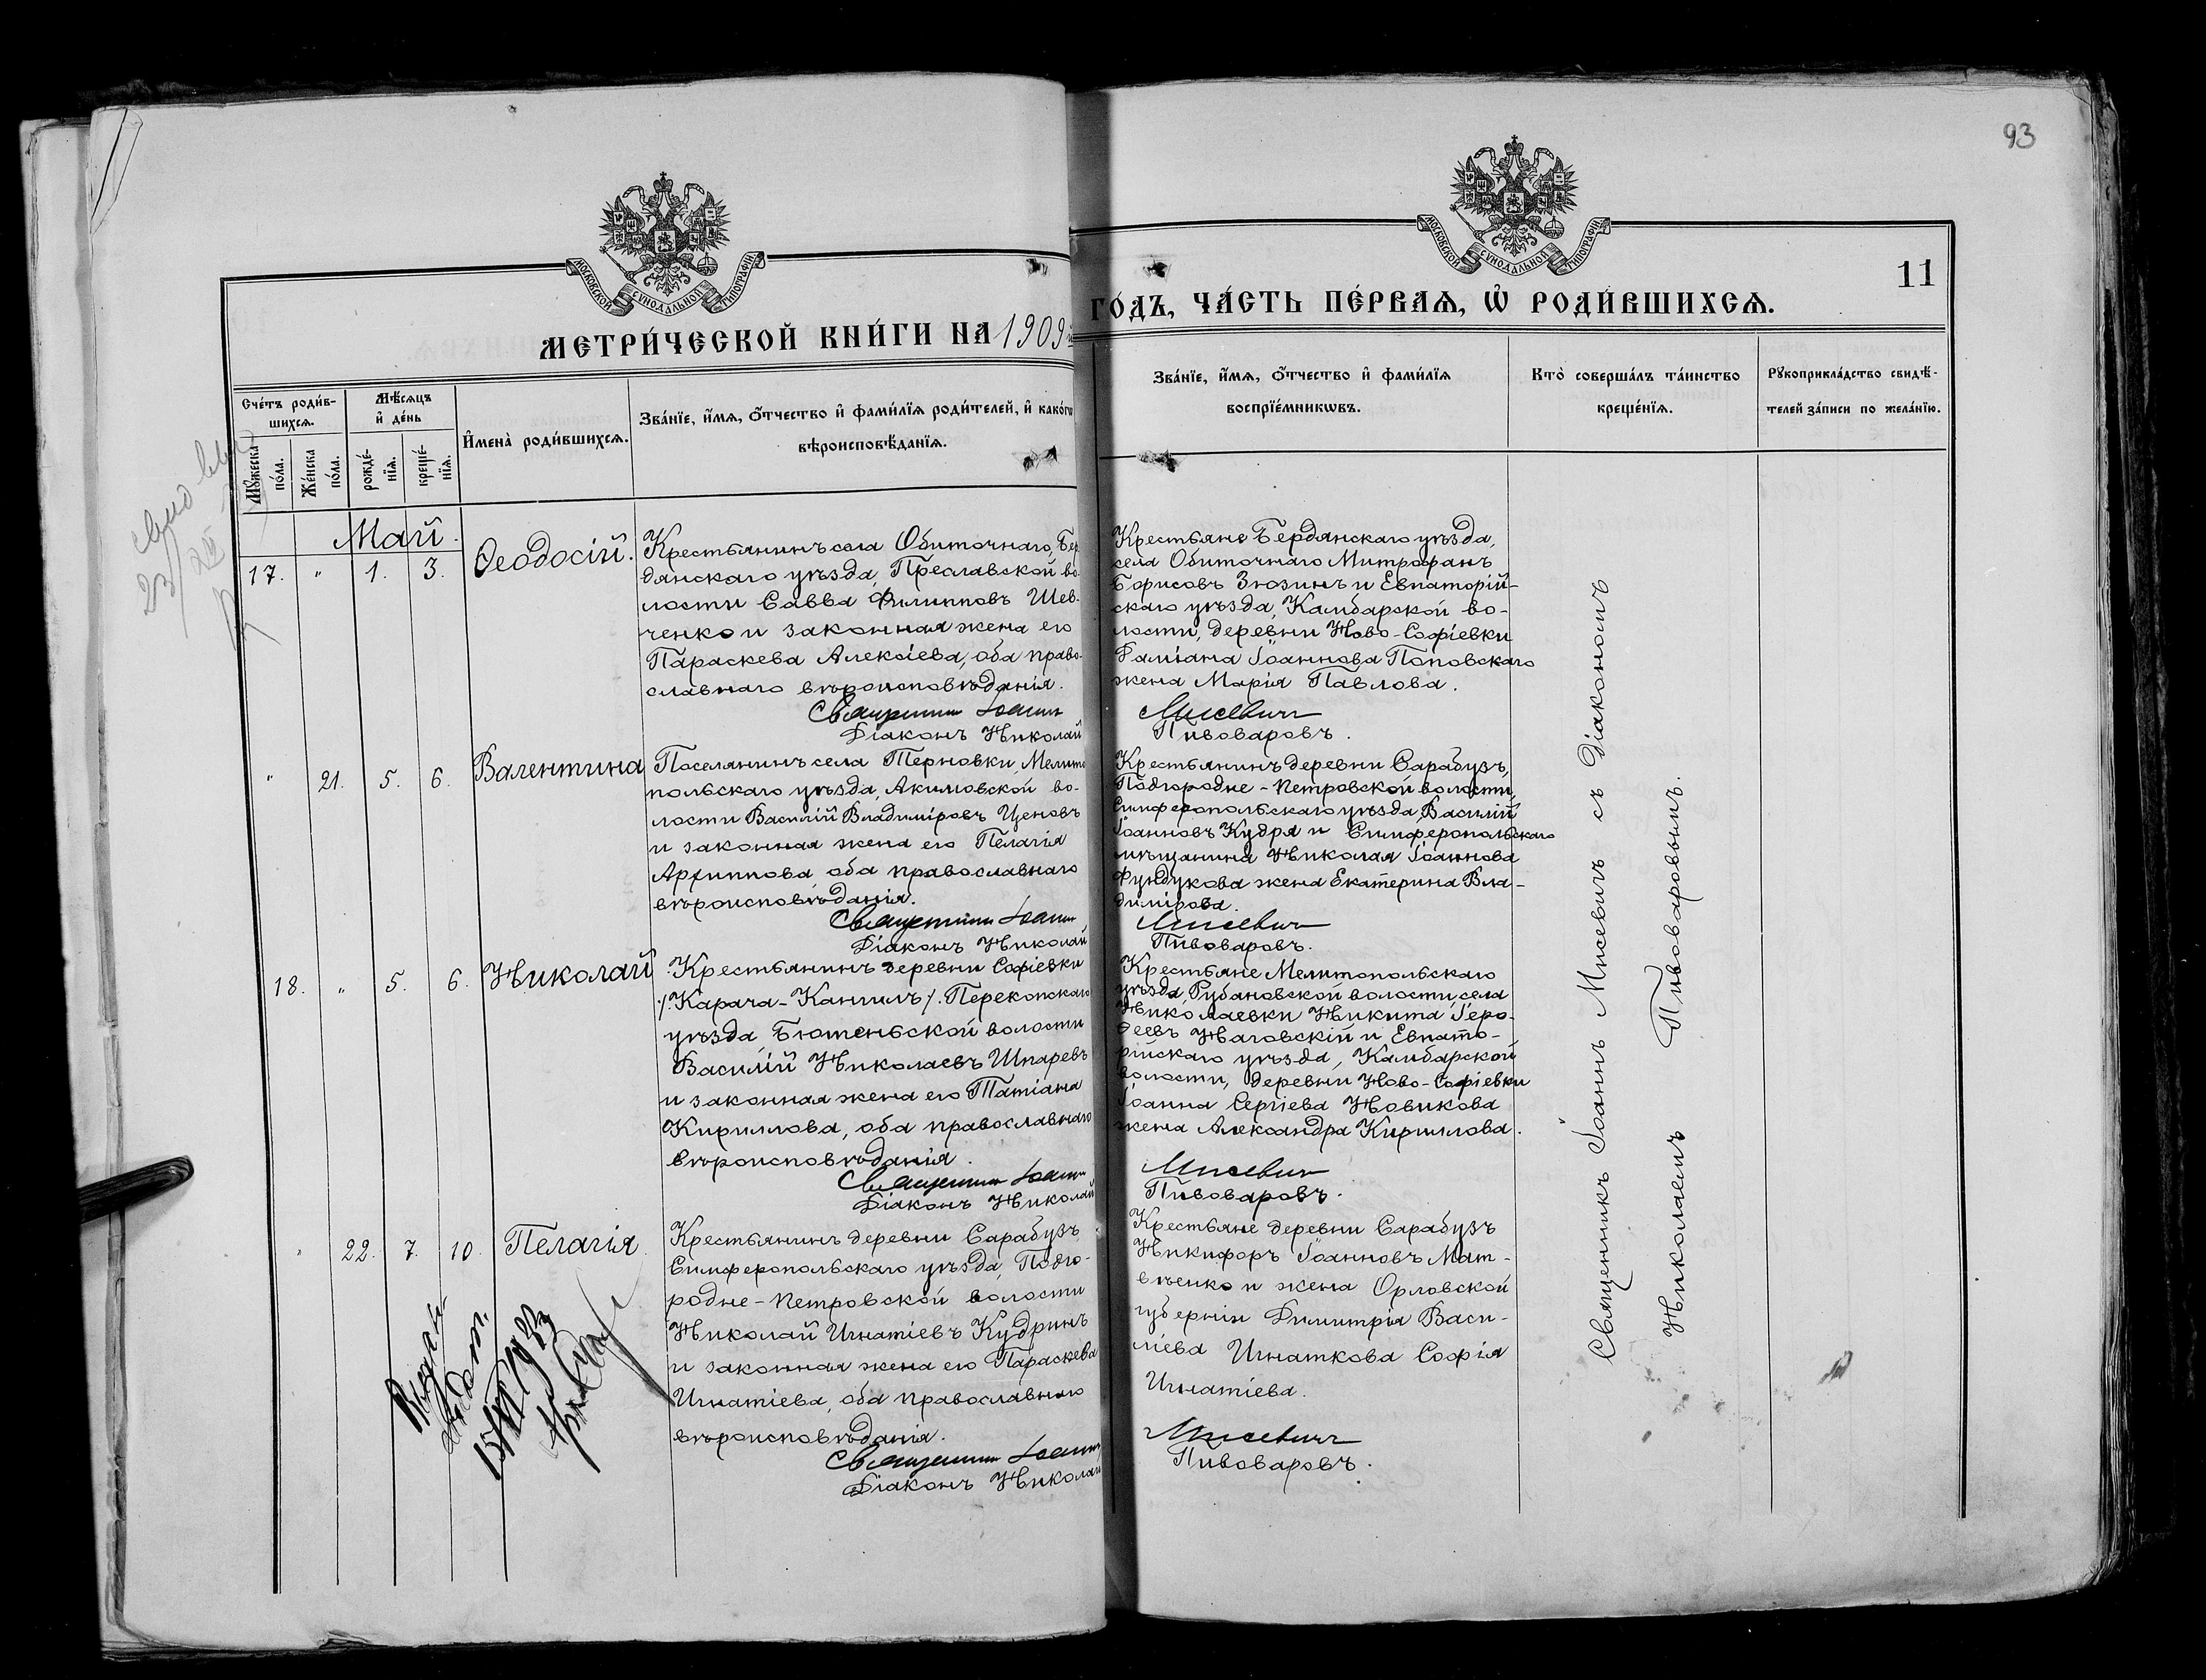 93
МОСКОВСКОЙ СѴНОДАЛЬНОЙ ТИПОГРАФІИ
МОСКОВСКОЙ СѴНОДАЛЬНОЙ ТИПОГРАФІИ
11
МЕТРИ́ЧЕСКОЙ КНИ́ГИ НА 1909й
ГО́ДЪ, ЧА́СТЬ ПЕ́РВАѦ, Ѡ҆ РОДИ́ВШИХСѦ.
Сче́тъ роди́в-
шихсѧ.
Мꙋ́жеска
по́ла.
Же́нска
по́ла.
Мѣ́сѧцъ
и҆ де́нь
рожде́-
нїѧ.
креще́-
нїѧ.
И҆мена̀ роди́вшихсѧ.
Зва́нїе, и҆́мѧ, ѻ҆́тчество и҆ фами́лїѧ роди́телей, и҆ како́гѡ
вѣроисповѣ́данїѧ.
Зва́нїе, и҆́мѧ, ѻ҆́тчество и҆ фами́лїѧ
воспрїе́мникѡвъ.
Кто̀ соверша́лъ та́инство
креще́нїѧ.
Рꙋкоприкла́дство свидѣ́-
телей за́писи по жела́нїю.
Май.
17. " 1. 3.
Ѳеодосій.
Крестьянинъ села Обиточнаго, Бер
дянскаго уѣзда, Преславской во-
лости Савва Филипповъ Шев-
ченко и законная жена его
Параскева Алексіева, оба право-
славнаго вѣроисповѣданія.
Священникъ Іоаннъ
Діаконъ Николай
Крестьяне Бердянскаго уѣзда,
села Обиточнаго Митрофанъ
Борисовъ Зюзинъ и Евпаторій-
скаго уѣзда, Камбарской во-
лости, деревни Ново-Софіевки
Даміана Іоаннова Поповскаго
жена Марія Павлова.
Мисевичъ
Пивоваровъ.
" 21. 5. 6.
Валентина
Поселянинъ села Терновки, Мелито
польскаго уѣзда, Акимовской во-
лости Василій Владиміровъ Ценовъ
и законная жена его Пелагія
Архиппова оба православнаго
вѣроисповѣданія.
Священникъ Іоаннъ
Діаконъ Николай
Крестьянинъ деревни Сарабузъ,
Подгородне-Петровской волости,
Симферопольскаго уѣзда, Василій
Іоанновъ Кудря и Симферопольскаго
мѣщанина Николая Іоаннова
Фундукова жена Екатерина Вла-
димірова.
Мисевичъ
Пивоваровъ.
18. " 5. 6.
Николай
Крестьянинъ деревни Софіевки
/. Карача-Кангилъ /. Перекопскаго
уѣзда, Бютеньской волости
Василій Николаевъ Шпаревъ
и законная жена его Татіана
Кириллова, оба православнаго
вѣроисповѣданія.
Священникъ Іоаннъ
Діаконъ Николай
Крестьяне Мелитопольскаго
уѣзда, Рубановской волости, села
Николаевки Никита Геро-
ѳеевъ Наговскій и Евпато-
рійскаго уѣзда, Камбарской
волости, деревни Ново-Софіевки
Іоанна Сергіева Новикова
жена Александра Кириллова.
Мисевичъ
Пивоваровъ.
" 22. 7. 10.
Пелагія
Крестьянинъ деревни Сарабузъ
Симферопольскаго уѣзда, Подго-
родне-Петровской волости
Николай Игнатіевъ Кудринъ
и законная жена его Параскева
Игнатіева, оба православнаго
вѣроисповѣданія.
Священникъ Іоаннъ
Діаконъ Николай
Крестьяне деревни Сарабузъ
Никифоръ Іоанновъ Мат-
вѣенко и жена Орловской
губерніи Димитрія Васи-
ліева Игнаткова Софія
Игнатіева.
Мисевичъ
Пивоваровъ.
Священникъ Іоаннъ Мисевичъ съ Діакономъ
Николаемъ Пивоваровымъ.